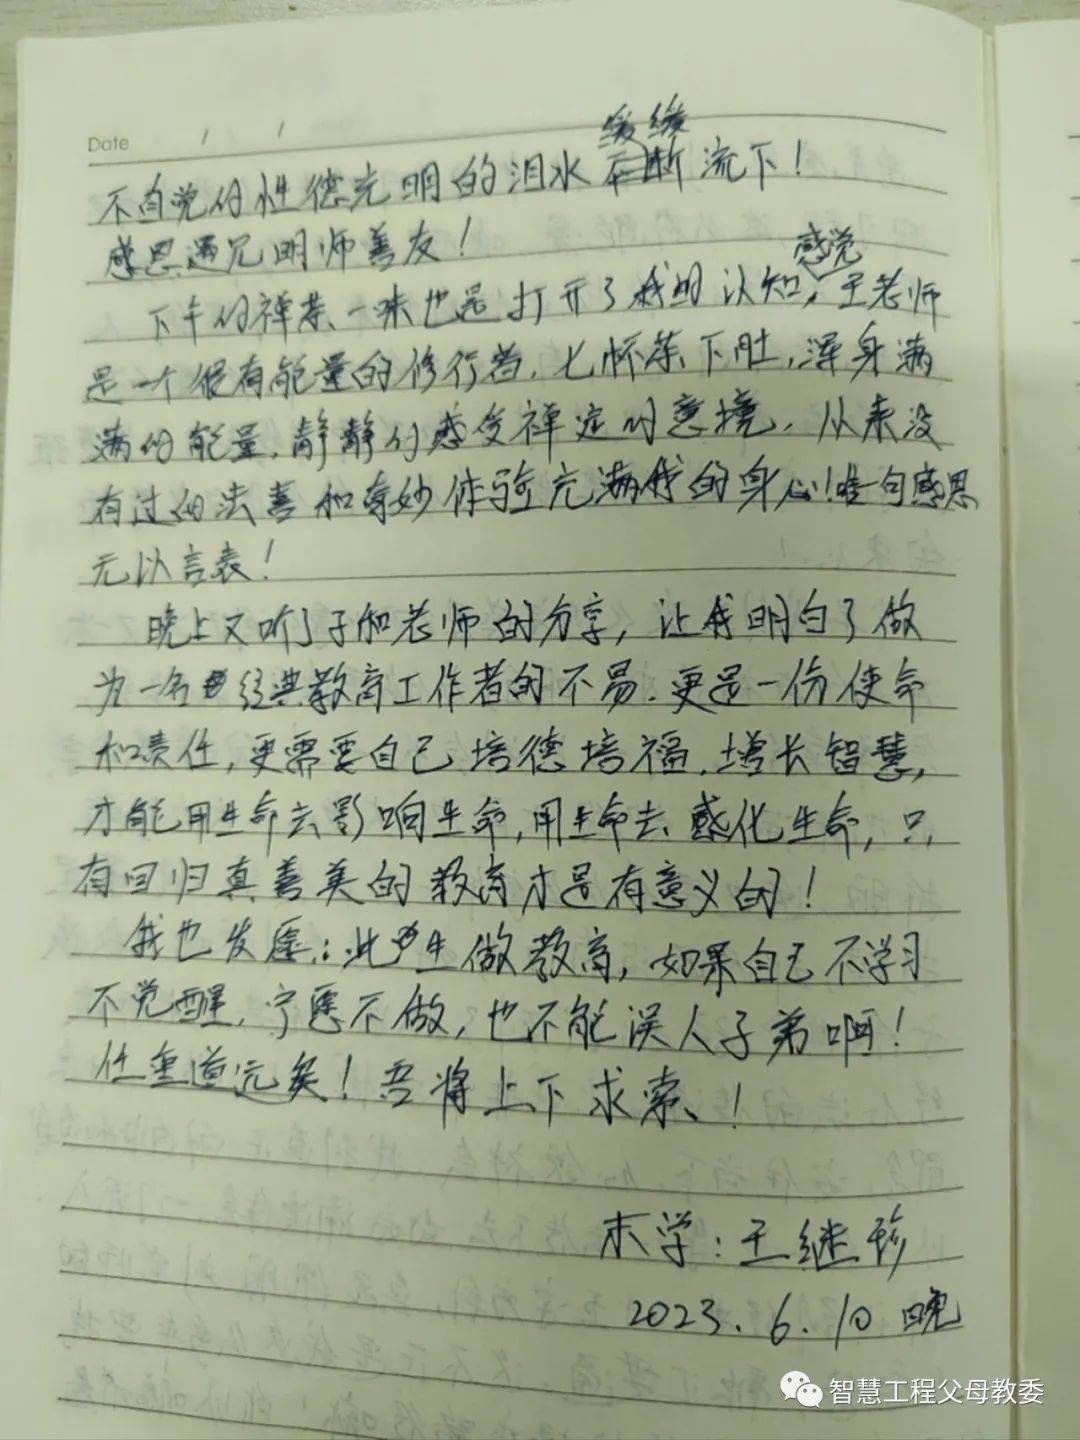 Date / /
不自觉的性德光明的泪水缓缓流下！
感恩遇见明师善友！
下午的禅茶一味也是打开了我的认知，感觉王老师
是一个很有能量的修行者，七杯茶下肚，浑身满
满的能量，静静的感受禅定的意境，从来没
有过的法喜和奇妙体验充满我的身心！唯一句感恩
无以言表！
晚上又听了子和老师的分享，让我明白了做
为一名经典教育工作者的不易，更是一份使命
和责任，更需要自己培德培福，增长智慧，
才能用生命去影响生命，用生命去感化生命，只
有回归真善美的教育才是有意义的！
我也发愿：此生做教育，如果自己不学习
不觉醒，宁愿不做，也不能误人子弟啊！
任重道远矣！吾将上下求索！
末学：王继珍
2023.6.10晚
智慧工程父母教委